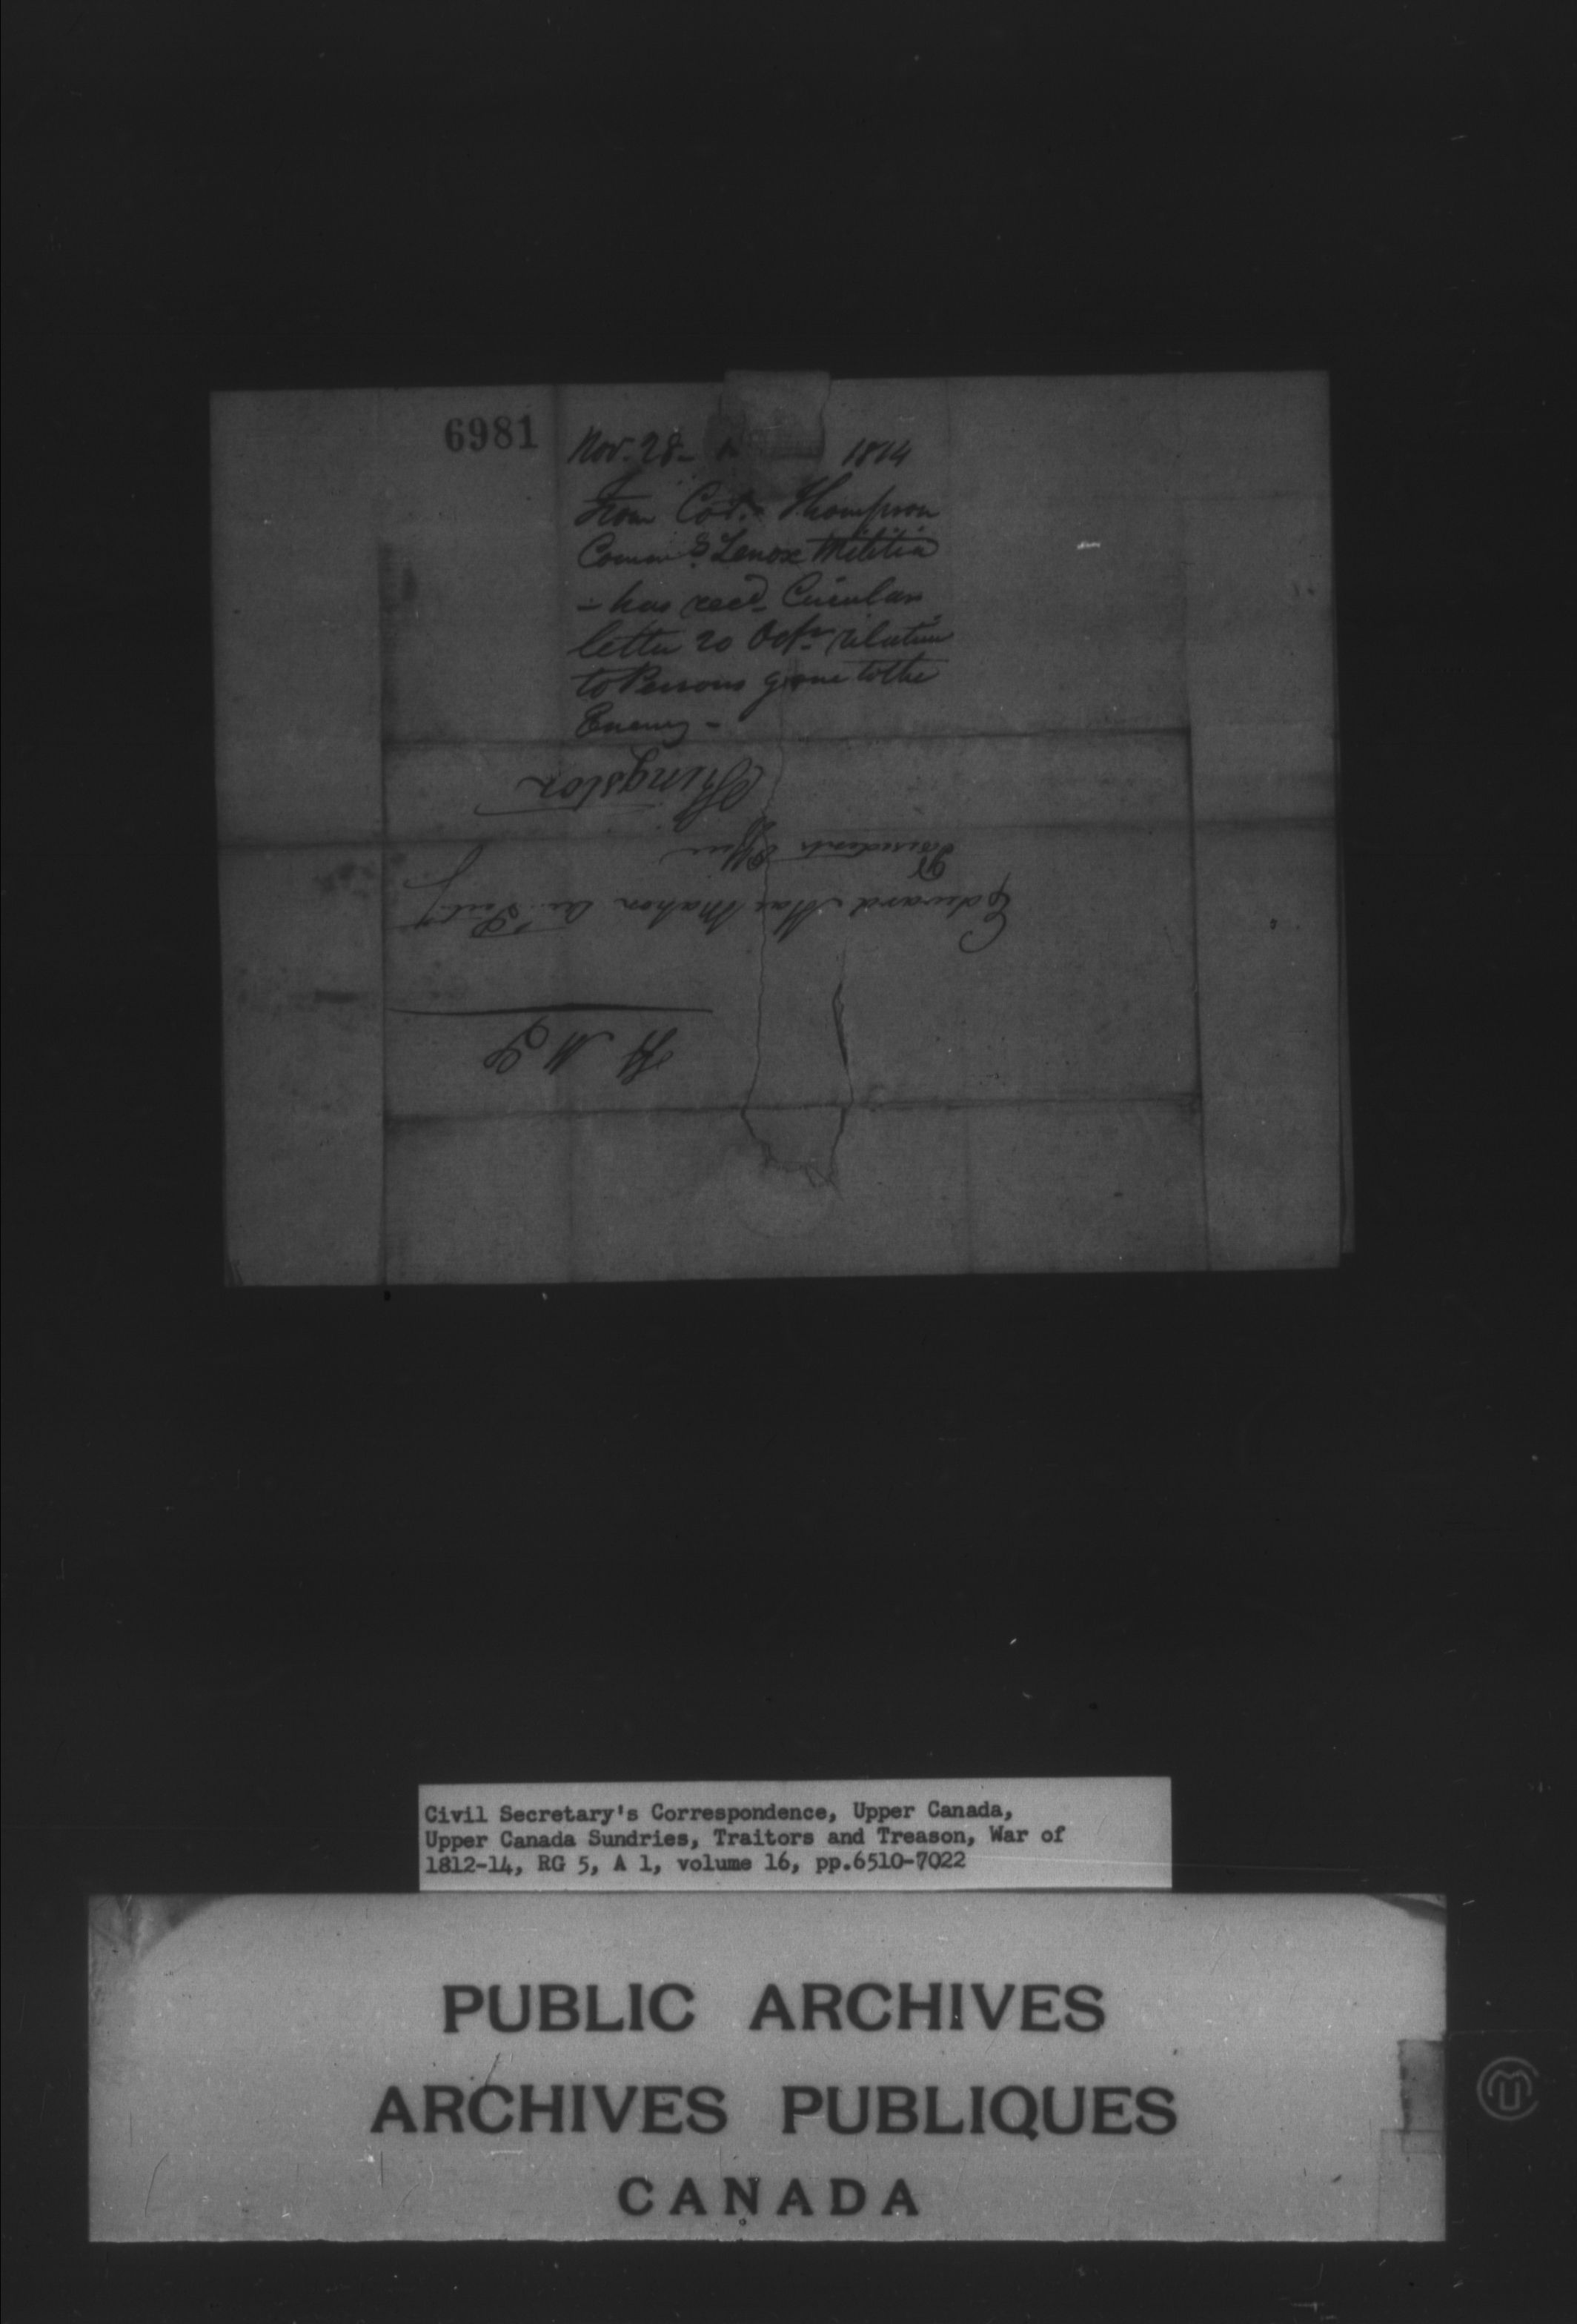 6981
Nov. 28 - 1814
From Col. Thompson
Comm.g Lenox Militia
- has recd. Circular
letter 20 Octr. relative
to Persons gone to the
Enemy -
H M S
Edward Mac Mahon
Presidents Office
Kingston
Civil Secretary's Correspondence, Upper Canada,
Upper Canada Sundries, Traitors and Treason, War of
1812-14, RG 5, A 1, volume 16, pp.6510-7022
PUBLIC ARCHIVES
ARCHIVES PUBLIQUES
CANADA